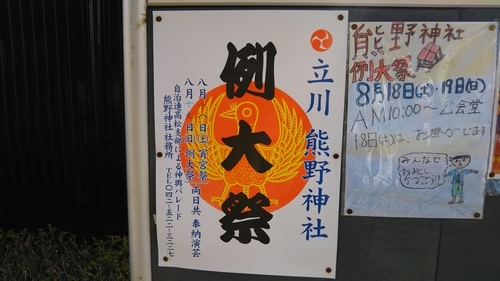 立川 熊野神社
例大祭
八月十八日土 宵宮祭
八月十九日日 例大祭
両日共 奉納演芸
自治連高松支部による神輿パレード
熊野神社社務所
熊野神社
例大祭
8月18日(土)・19日(日)
AM10:00〜公会堂
18日(土)は、お囃子がでます
みんなで